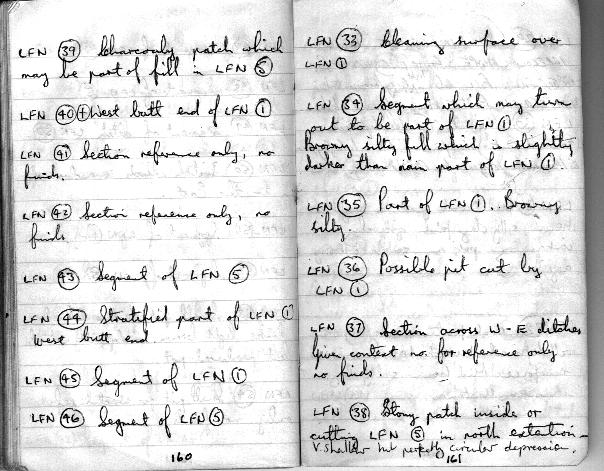 LFN 39 Charcoaly patch which
may be part of fill in LFN 5
LFN 40 + West butt end of LFN 1
LFN 41 Section reference only, no
finds.
LFN 42 Section reference only, no
finds
LFN 43 Segment of LFN 5
LFN 44 Stratified part of LFN 1
West butt end
LFN 45 Segment of LFN 1
LFN 46 Segment of LFN 5
160
LFN 33 Cleaning surface over
LFN 1
LFN 34 Segment which may turn
out to be part of LFN 1
Browny silty fill which is slightly
darker than main part of LFN 1.
LFN 35 Part of LFN 1. Browny
silty.
LFN 36 Possible pit cut by
LFN 1
LFN 37 Section across W-E ditches
Given context no. for reference only
no finds.
LFN 38 Stony patch inside or
cutting LFN 5 in north extention -
V. shallow but perfectly circular depression.
161